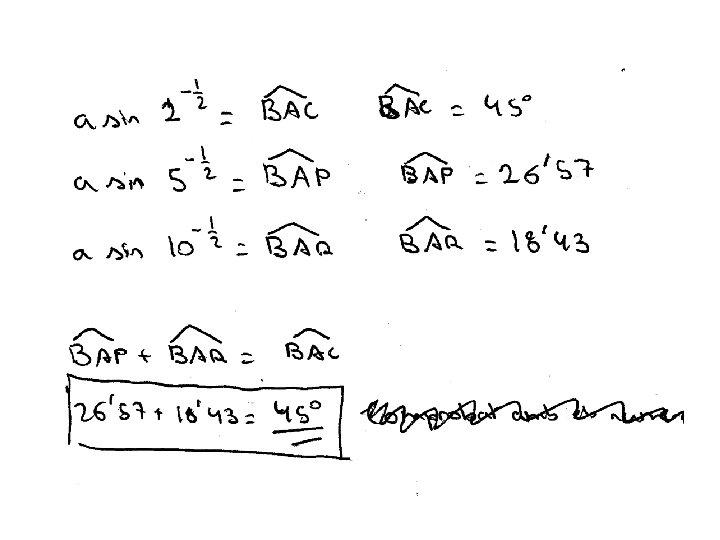 a sin 2^{-1/2} = \widehat{BAC} \widehat{BAC} = 45°
a sin 5^{-1/2} = \widehat{BAP} \widehat{BAP} = 26'57
a sin 10^{-1/2} = \widehat{BAQ} \widehat{BAQ} = 18'43
\widehat{BAP} + \widehat{BAQ} = \widehat{BAC}
26'57 + 18'43 = 45°